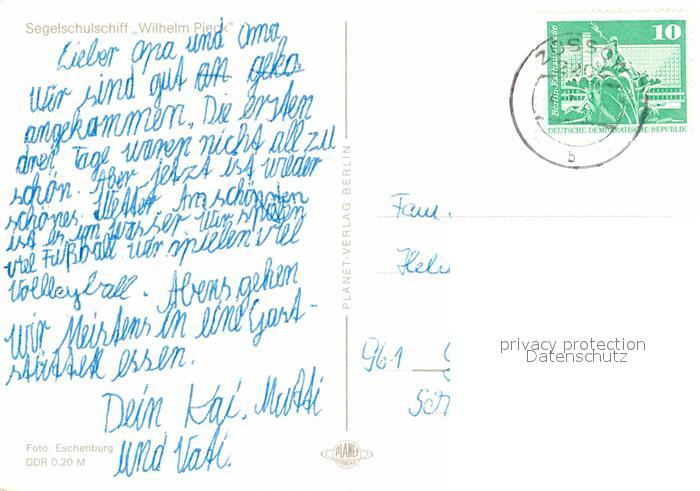 Segelschulschiff „Wilhelm Pieck"
Lieber Opa und Oma
Wir sind gut an geko
angekommen. Die ersten
drei Tage waren nicht all zu
schön. Aber jetzt ist wieder
schönes Wetter Am schönsten
ist es im wasser wir spielen
viel Fußball wir spielen viel
Volleyball. Abens gehen
wir Meistens in eine Gast-
stätte essen.
Dein Kai, Mutti
und Vati.
Foto: Eschenburg
DDR 0,20 M
PLANET-VERLAG BERLIN
PLANET
10
Berlin-Rathausstraße
DEUTSCHE DEMOKRATISCHE REPUBLIK
ZÜSSOW
b
Fam.
961
privacy protection
Datenschutz